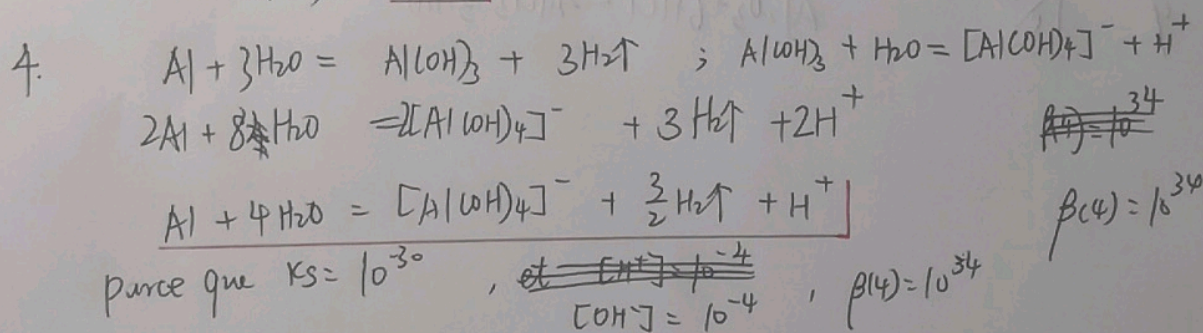 4. Al + 3H₂O = Al(OH)₃ + 3H₂↑ ; Al(OH)₃ + H₂O = [Al(OH)₄]⁻ + H⁺
2Al + 8H₂O = 2[Al(OH)₄]⁻ + 3H₂↑ + 2H⁺
Al + 4H₂O = [Al(OH)₄]⁻ + 3/2 H₂↑ + H⁺ β(4) = 10³⁴
parce que Ks = 10⁻³⁰ , et [H⁺] = 10⁻⁴ , β(4) = 10³⁴
[OH⁻] = 10⁻⁴